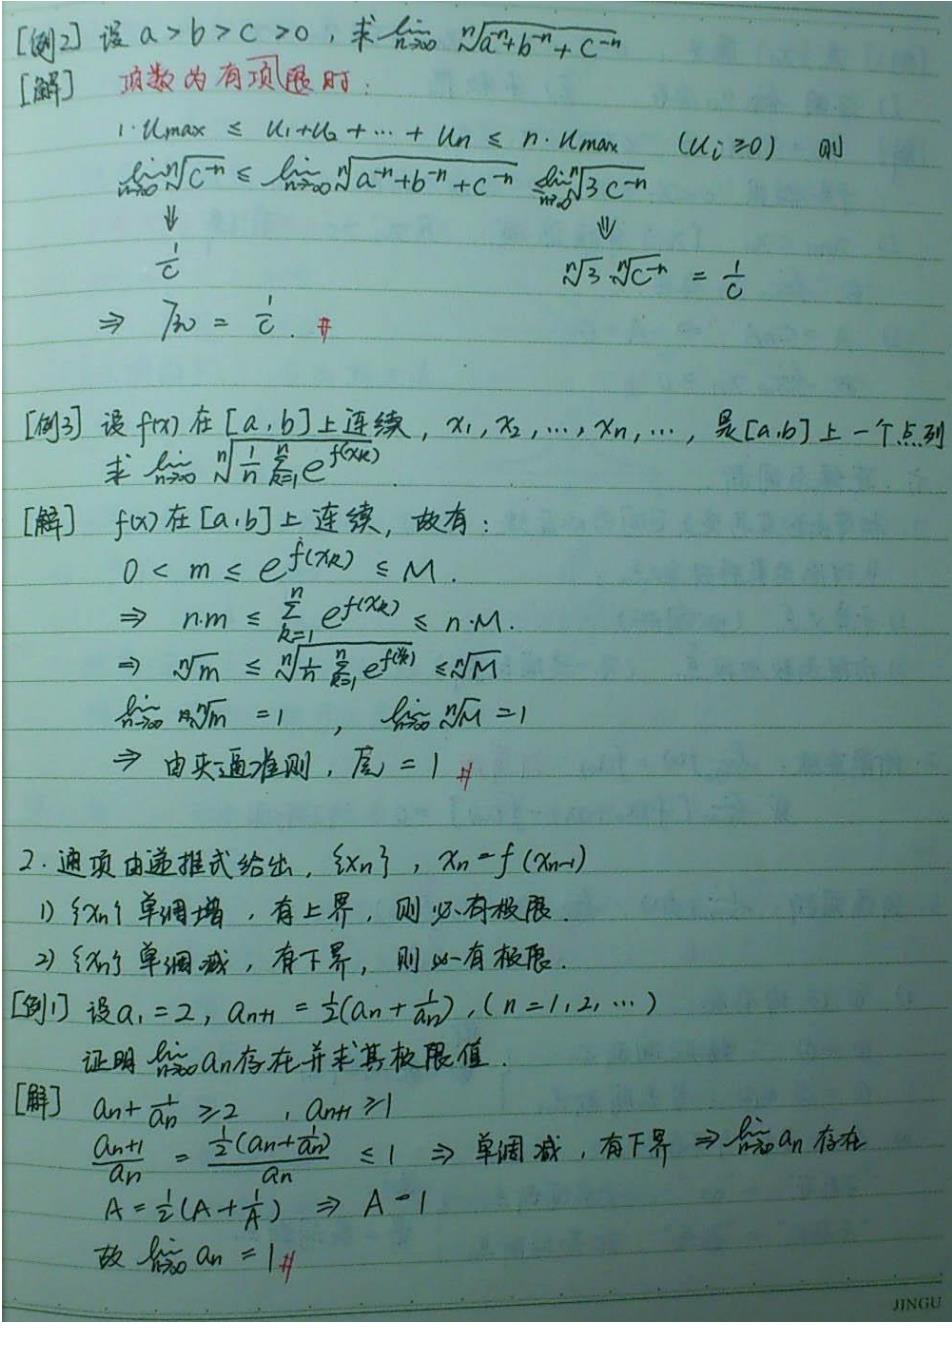 [例2] 设 a>b>c>0, 求 lim n→∞ ⁿ√(a⁻ⁿ+b⁻ⁿ+c⁻ⁿ)
[解] 项数为有项限时:
1·Umax ≤ U1+U2+⋯+Un ≤ n·Umax (Ui≥0) 则
lim n→∞ ⁿ√(c⁻ⁿ) ≤ lim n→∞ ⁿ√(a⁻ⁿ+b⁻ⁿ+c⁻ⁿ) ≤ lim n→∞ ⁿ√(3c⁻ⁿ)
⇓ ⇓
1/c ⁿ√3 ⁿ√(c⁻ⁿ) = 1/c
⇒ 原 = 1/c . #
[例3] 设f(x)在[a,b]上连续, x1, x2, …, xn, …, 是[a,b]上一个点列
求 lim n→∞ ⁿ√(1/n Σ(k=1..n) e^f(xk))
[解] f(x)在[a,b]上连续, 故有:
0 < m ≤ e^f(xk) ≤ M.
⇒ n·m ≤ Σ(k=1..n) e^f(xk) ≤ n·M.
⇒ ⁿ√m ≤ ⁿ√(1/n Σ(k=1..n) e^f(xk)) ≤ ⁿ√M
lim n→∞ ⁿ√m = 1 , lim n→∞ ⁿ√M = 1
⇒ 由夹逼准则, 原 = 1 #
2. 通项由递推式给出, {xn}, xn = f(xn-1)
1) {xn}单调增, 有上界, 则必有极限.
2) {xn}单调减, 有下界, 则必有极限.
[例1] 设a1=2, an+1 = 1/2(an + 1/an), (n=1,2,…)
证明 lim n→∞ an存在并求其极限值.
[解] an + 1/an ≥2 , an+1 ≥1
an+1/an = 1/2(an+1/an)/an ≤ 1 ⇒ 单调减, 有下界 ⇒ lim n→∞ an 存在
A = 1/2(A + 1/A) ⇒ A = 1
故 lim n→∞ an = 1 #
JINGU